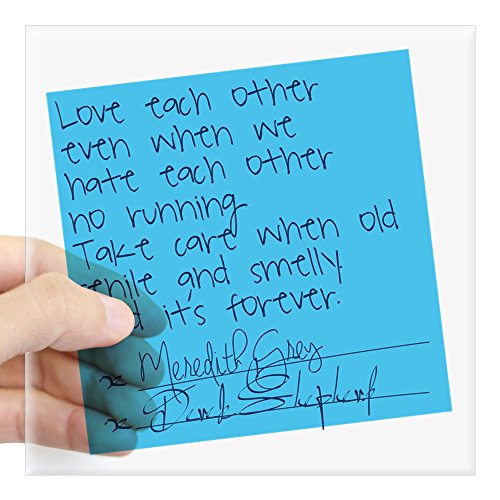 Love each other
even when we
hate each other
no running
Take care when old
senile and smelly
and it's forever.
x Meredith Grey
x Derek Shepherd